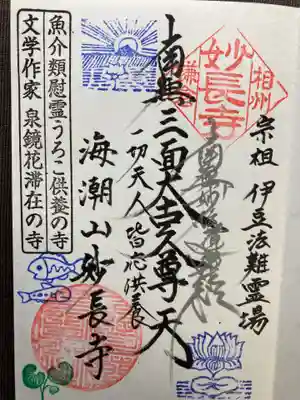 宗祖 伊豆法難霊場
相州
鎌倉
妙長寺
南無三面大黒尊天
一切天人皆応供養
海潮山妙長寺
魚介類慰霊うろこ供養の寺
文学作家 泉鏡花滞在の寺